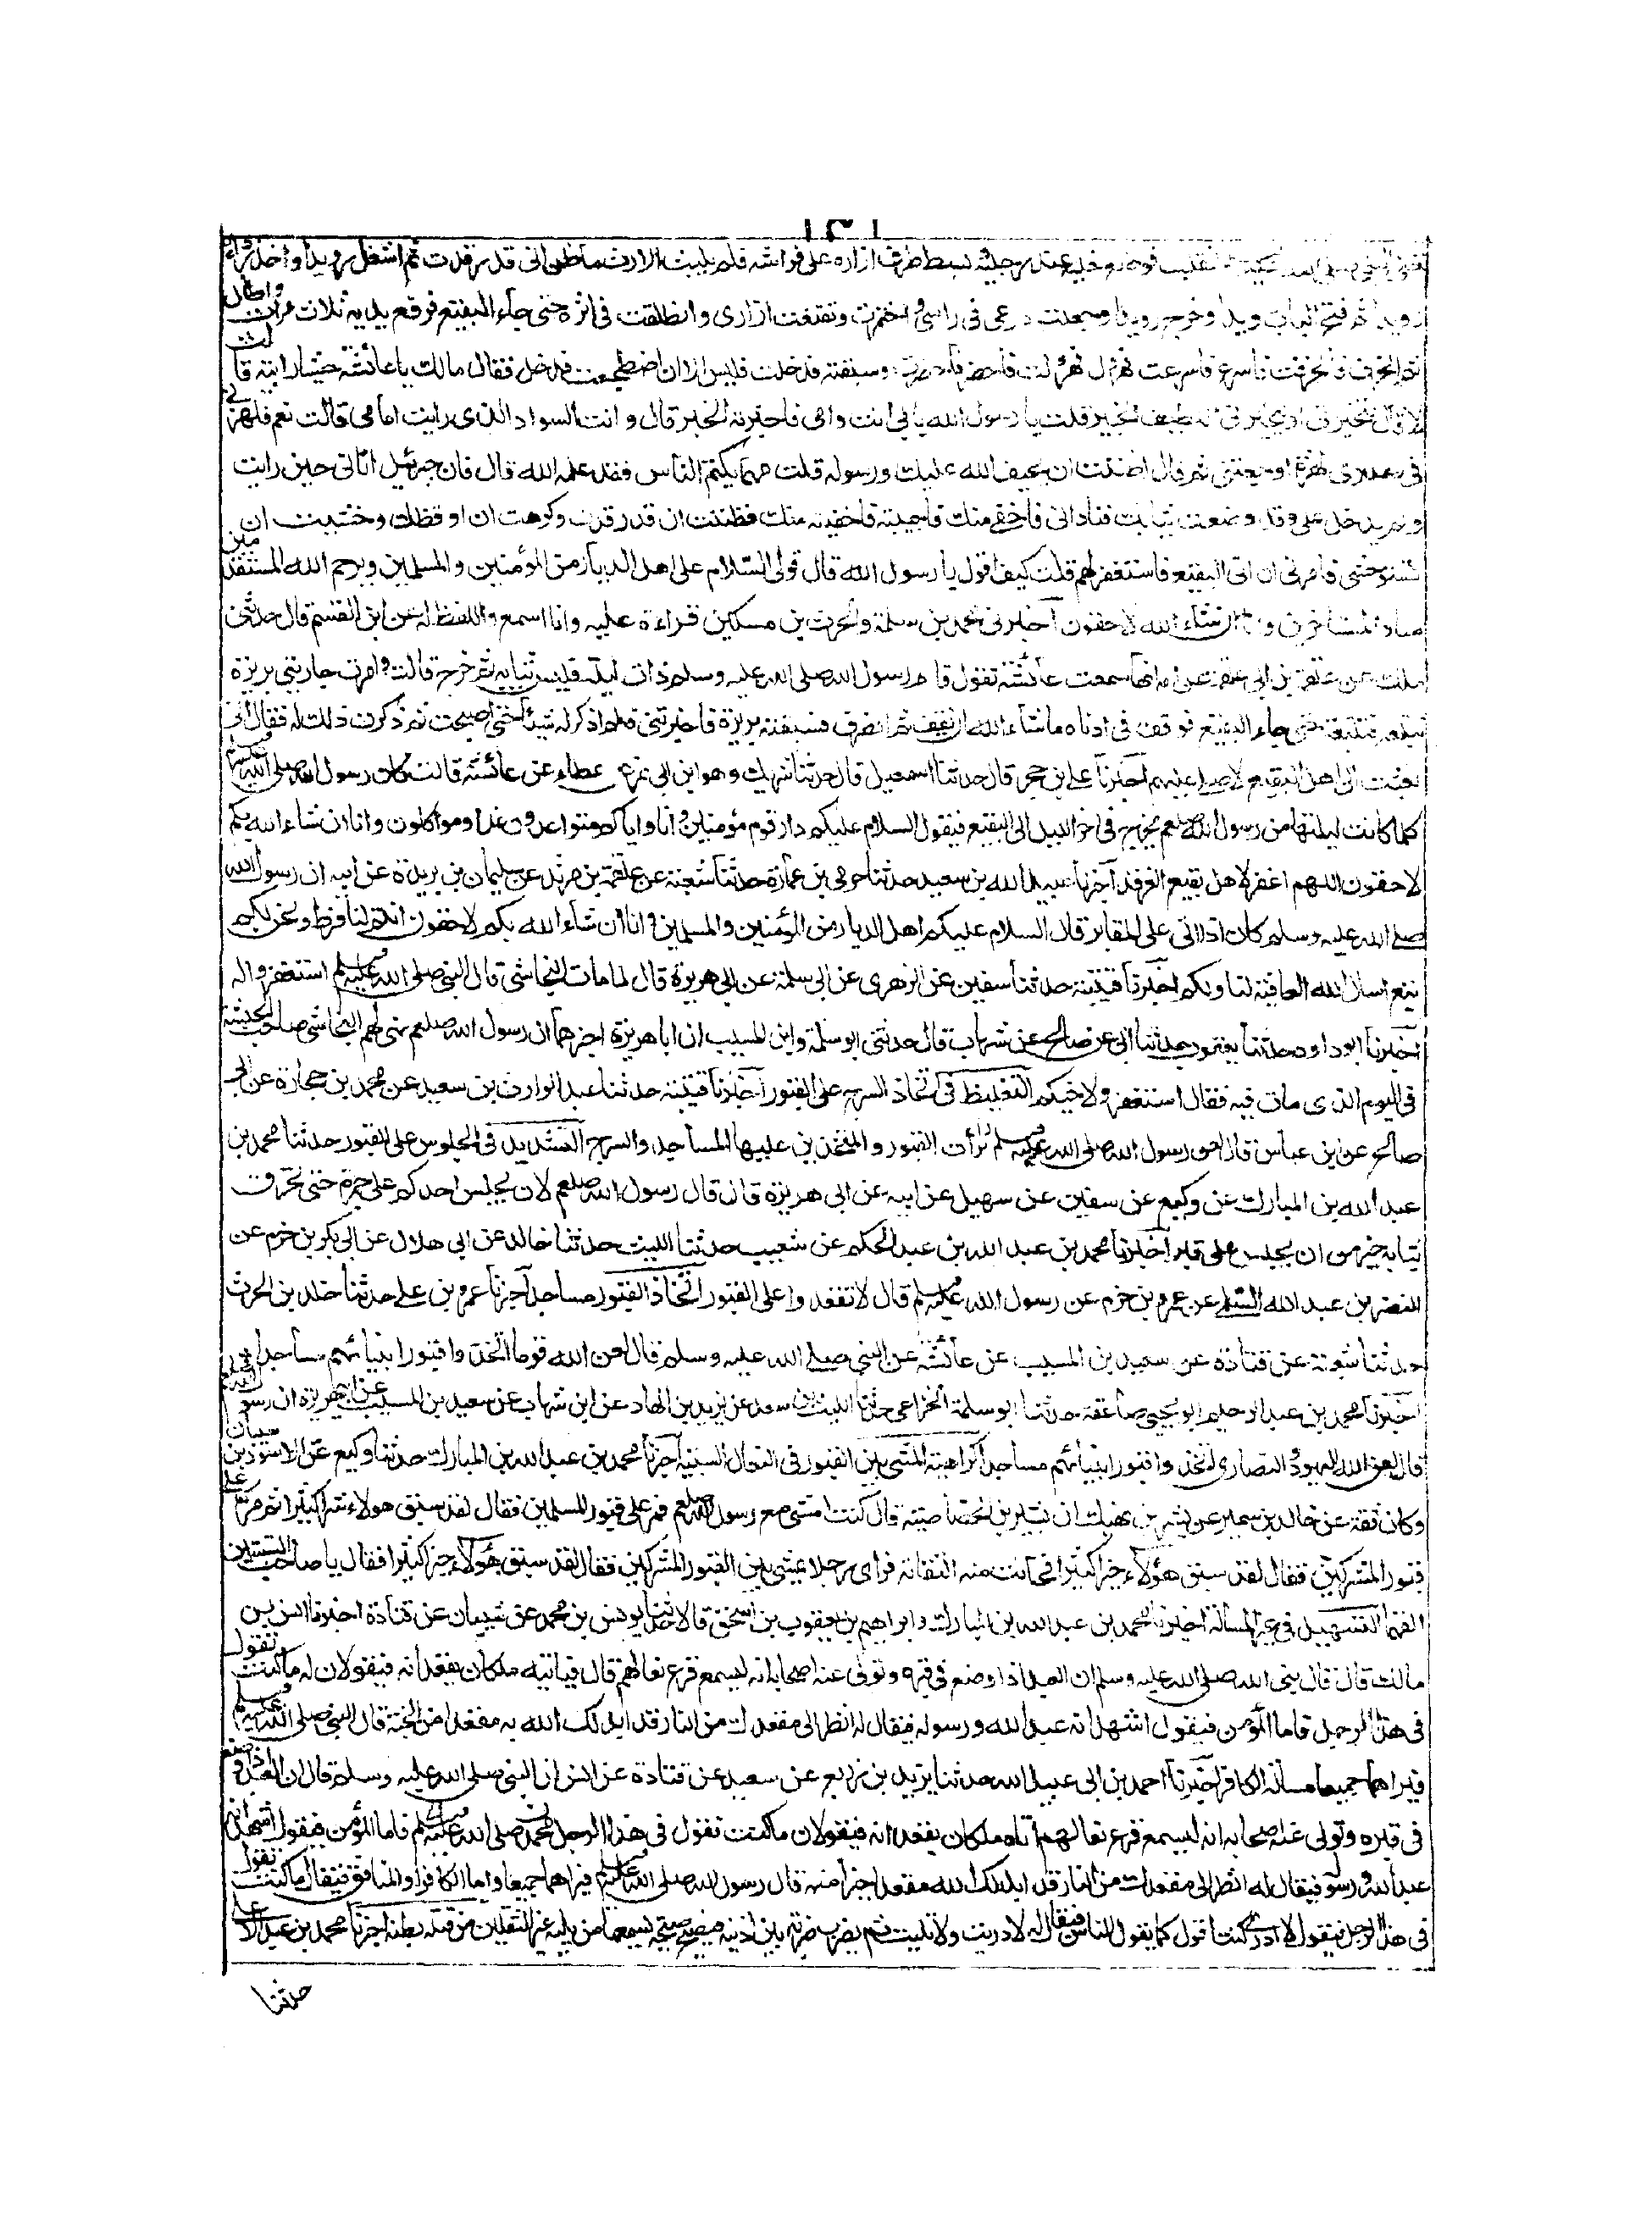 انقلب فوضع نعليه عند رجليه وبسط طرف ازاره على فراشه فلم يلبث الا ريث ما ظن انى قد رقدت ثم انتعل رويدا واخذ رداءه
رويدا ثم فتح الباب رويدا وخرج رويدا وجعلت درعى فى راسى واختمرت وتقنعت ازارى وانطلقت فى اثره حتى جاء البقيع فرفع يديه ثلاث مرات واطال
ثم انحرف فانحرفت فاسرع فاسرعت فهرول فهرولت فاحضر فاحضرت وسبقته فدخلت فليس الا ان اضطجعت فدخل فقال مالك يا عائشة حشيا رابية قالت
لا قال لتخبرنى او ليخبرنى اللطيف الخبير قلت يا رسول الله بابى انت وامى فاخبرته الخبر قال وانت السواد الذى رايت امامى قالت نعم فلهزنى
فى صدرى لهزة اوجعتنى ثم قال اظننت ان يحيف الله عليك ورسوله قلت مهما يكتم الناس فقد علمه الله قال فان جبرئيل اتانى حين رايت
ولم يدخل على وقد وضعت ثيابك فنادانى فاخفى منك فاجبته فاخفيته منك فظننت ان قد رقدت وكرهت ان اوقظك وخشيت ان
تستوحشى فامرنى ان اتى البقيع فاستغفر لهم قلت كيف اقول يا رسول الله قال قولى السلام على اهل الديار من المؤمنين والمسلمين ويرحم الله المستقدمين
منا والمستاخرين وانا ان شاء الله لاحقون اخبرنى محمد بن سلمة والحرث بن مسكين قراءة عليه وانا اسمع واللفظ له عن ابن القسم قال حدثنى
مالك عن علقمة بن ابى علقمة عن امه انها سمعت عائشة تقول قام رسول الله صلى الله عليه وسلم ذات ليلة فلبس ثيابه ثم خرج قالت فامرت جاريتى بريرة
تتبعه فتبعته حتى جاء البقيع فوقف فى ادناه ما شاء الله ان يقف ثم انصرف فسبقته بريرة فاخبرتنى فلم اذكر له شيئا حتى اصبحت ثم ذكرت ذلك له فقال انى
بعثت الى اهل البقيع لاصلى عليهم اخبرنا على بن حجر قال حدثنا اسمعيل قال حدثنا شريك وهو ابن ابى نمر عن عطاء عن عائشة قالت كان رسول الله صلى الله عليه وسلم
كلما كانت ليلتها من رسول الله صلعم يخرج فى اخر الليل الى البقيع فيقول السلام عليكم دار قوم مؤمنين وانا واياكم متواعدون غدا ومواكلون وانا ان شاء الله بكم
لاحقون اللهم اغفر لاهل بقيع الغرقد اخبرنا عبيد الله بن سعيد حدثنا حرمى بن عمارة حدثنا شعبة عن علقمة بن مرثد عن سليمان بن بريدة عن ابيه ان رسول الله
صلى الله عليه وسلم كان اذا اتى على المقابر قال السلام عليكم اهل الديار من المؤمنين والمسلمين وانا ان شاء الله بكم لاحقون انتم لنا فرط ونحن لكم
تبع اسال الله العافية لنا ولكم اخبرنا قتيبة حدثنا سفين عن الزهرى عن ابى سلمة عن ابى هريرة قال لما مات النجاشى قال النبى صلى الله عليه وسلم استغفروا له
اخبرنا ابو داود حدثنا يعقوب حدثنا ابى عن صالح عن شهاب قال حدثنى ابو سلمة وابن المسيب ان ابا هريرة اخبرهما ان رسول الله صلعم نعى لهم النجاشى صاحب الحبشة
فى اليوم الذى مات فيه فقال استغفروا لاخيكم التغليظ فى اتخاذ السرج على القبور اخبرنا قتيبة حدثنا عبد الوارث بن سعيد عن محمد بن جحادة عن ابى
صالح عن ابن عباس قال لعن رسول الله صلى الله عليه وسلم زائرات القبور والمتخذين عليها المساجد والسرج التشديد فى الجلوس على القبور حدثنا محمد بن
عبد الله بن المبارك عن وكيع عن سفين عن سهيل عن ابيه عن ابى هريرة قال قال رسول الله صلعم لان يجلس احدكم على جمرة حتى تحرق
ثيابه خير من ان يجلس على قبر اخبرنا محمد بن عبد الله بن عبد الحكم عن شعيب حدثنا الليث حدثنا خالد عن ابى هلال عن ابى بكر بن حزم عن
النضر بن عبد الله السلمى عن عمرو بن حزم عن رسول الله عليه وسلم قال لا تقعدوا على القبور اتخاذ القبور مساجد اخبرنا عمرو بن على حدثنا خالد بن الحرث
حدثنا شعبة عن قتادة عن سعيد بن المسيب عن عائشة عن النبى صلى الله عليه وسلم قال لعن الله قوما اتخذوا قبور انبيائهم مساجد
اخبرنا محمد بن عبد الرحيم ابو يحيى صاعقة حدثنا ابو سلمة الخزاعى حدثنا الليث بن سعد عن يزيد بن الهاد عن ابن شهاب عن سعيد بن المسيب عن ابى هريرة ان رسول الله صلعم
قال لعن الله اليهود والنصارى اتخذوا قبور انبيائهم مساجد كراهية المشى بين القبور فى النعال السبتية اخبرنا محمد بن عبد الله بن المبارك حدثنا وكيع عن الاسود بن شيبان
وكان ثقة عن خالد بن سمير عن بشير بن نهيك ان بشير بن الخصاصية قال كنت امشى مع رسول الله صلعم فمر على قبور المسلمين فقال لقد سبق هولاء شرا كثيرا ثم مر على
قبور المشركين فقال لقد سبق هؤلاء خيرا كثيرا فحانت منه التفاتة فراى رجلا يمشى بين القبور المشركين فقال لقد سبق هؤلاء خيرا كثيرا فقال يا صاحب السبتيتين
القهما التسهيل فى غير السبتية اخبرنا محمد بن عبد الله بن المبارك وابراهيم بن يعقوب بن اسحق قالا حدثنا يونس بن محمد عن شيبان عن قتادة اخبرنا انس بن
مالك قال قال نبى الله صلى الله عليه وسلم ان العبد اذا وضع فى قبره وتولى عنه اصحابه انه ليسمع قرع نعالهم قال فياتيه ملكان يقعدانه فيقولان له ما كنت تقول
فى هذا الرجل فاما المؤمن فيقول اشهد انه عبد الله ورسوله فيقال له انظر الى مقعدك من النار قد ابدلك الله به مقعدا من الجنة قال النبى صلى الله عليه وسلم
فيراهما جميعا مسالة الكافر اخبرنا احمد بن ابى عبيد الله حدثنا يزيد بن زريع عن سعيد عن قتادة عن انس ان النبى صلى الله عليه وسلم قال ان العبد اذا وضع
فى قبره وتولى عنه اصحابه انه ليسمع قرع نعالهم اتاه ملكان يقعدانه فيقولان ما كنت تقول فى هذا الرجل محمد صلى الله عليه وسلم فاما المؤمن فيقول اشهد انه
عبد الله ورسوله فيقال له انظر الى مقعدك من النار قد ابدلك الله مقعدا خيرا منه قال رسول الله صلى الله عليه وسلم فيراهما جميعا واما الكافر او المنافق فيقال ما كنت تقول
فى هذا الرجل فيقول لا ادرى كنت اقول كما يقول الناس فيقال له لا دريت ولا تليت ثم يضرب ضربة بين اذنيه فيصيح صيحة يسمعها من يليه غير الثقلين من قتله بطنه اخبرنا محمد بن عبد الاعلى
حدثنا